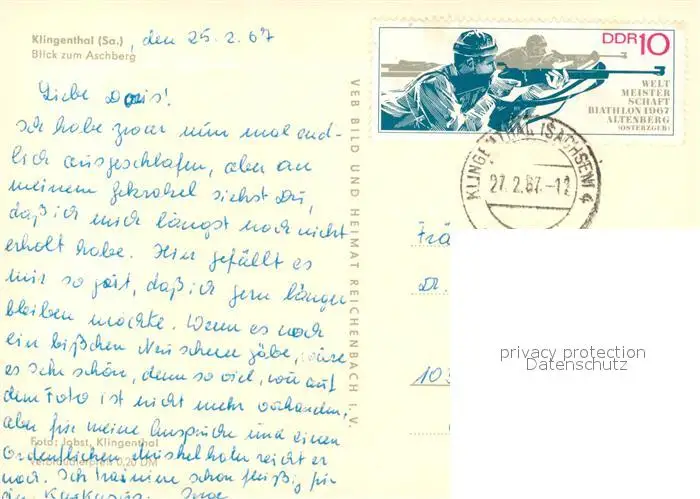 Klingenthal (Sa.), den 25.2.67
Blick zum Aschberg
Liebe Doris!
Ich habe zwar nun mal end-
lich ausgeschlafen, aber an
meinem Gekrakel siehst Du,
daß ich mich längst noch nicht
erholt habe. Hier gefällt es
mir so gut, daß ich gern länger
bleiben möchte. Wenn es noch
ein bißchen Neuschnee gäbe, wäre
es sehr schön, denn so viel, wie auf
dem Foto ist nicht mehr vorhanden,
aber für meine Ansprüche und einen
Foto: Jobst, Klingenthal
ordentlichen Muskelkater reicht er
Verbraucherpreis 0,20 DM
noch. Ich trainiere schon fleißig für
VEB BILD UND HEIMAT REICHENBACH i. V.
DDR 10
WELT
MEISTER
SCHAFT
BIATHLON 1967
ALTENBERG
(OSTERZGEB)
KLINGENTHAL (SACHSEN) 4
27.2.67.-12
Frä
Dr.
103
privacy protection
Datenschutz